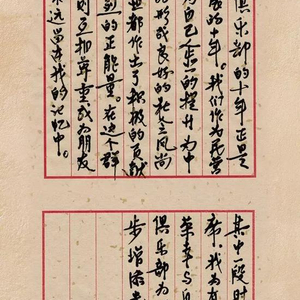 俱乐部的十年正是
展的十年。我们作为民营
为自己企业的提升为中
的形成良好的社会风尚
业都作出了积极的贡献
到的正能量。在这个群
则互相尊重成为朋友
永远留存我的记忆中。
其中一段时
席，我为在
荣幸与自
俱乐部为
步增添